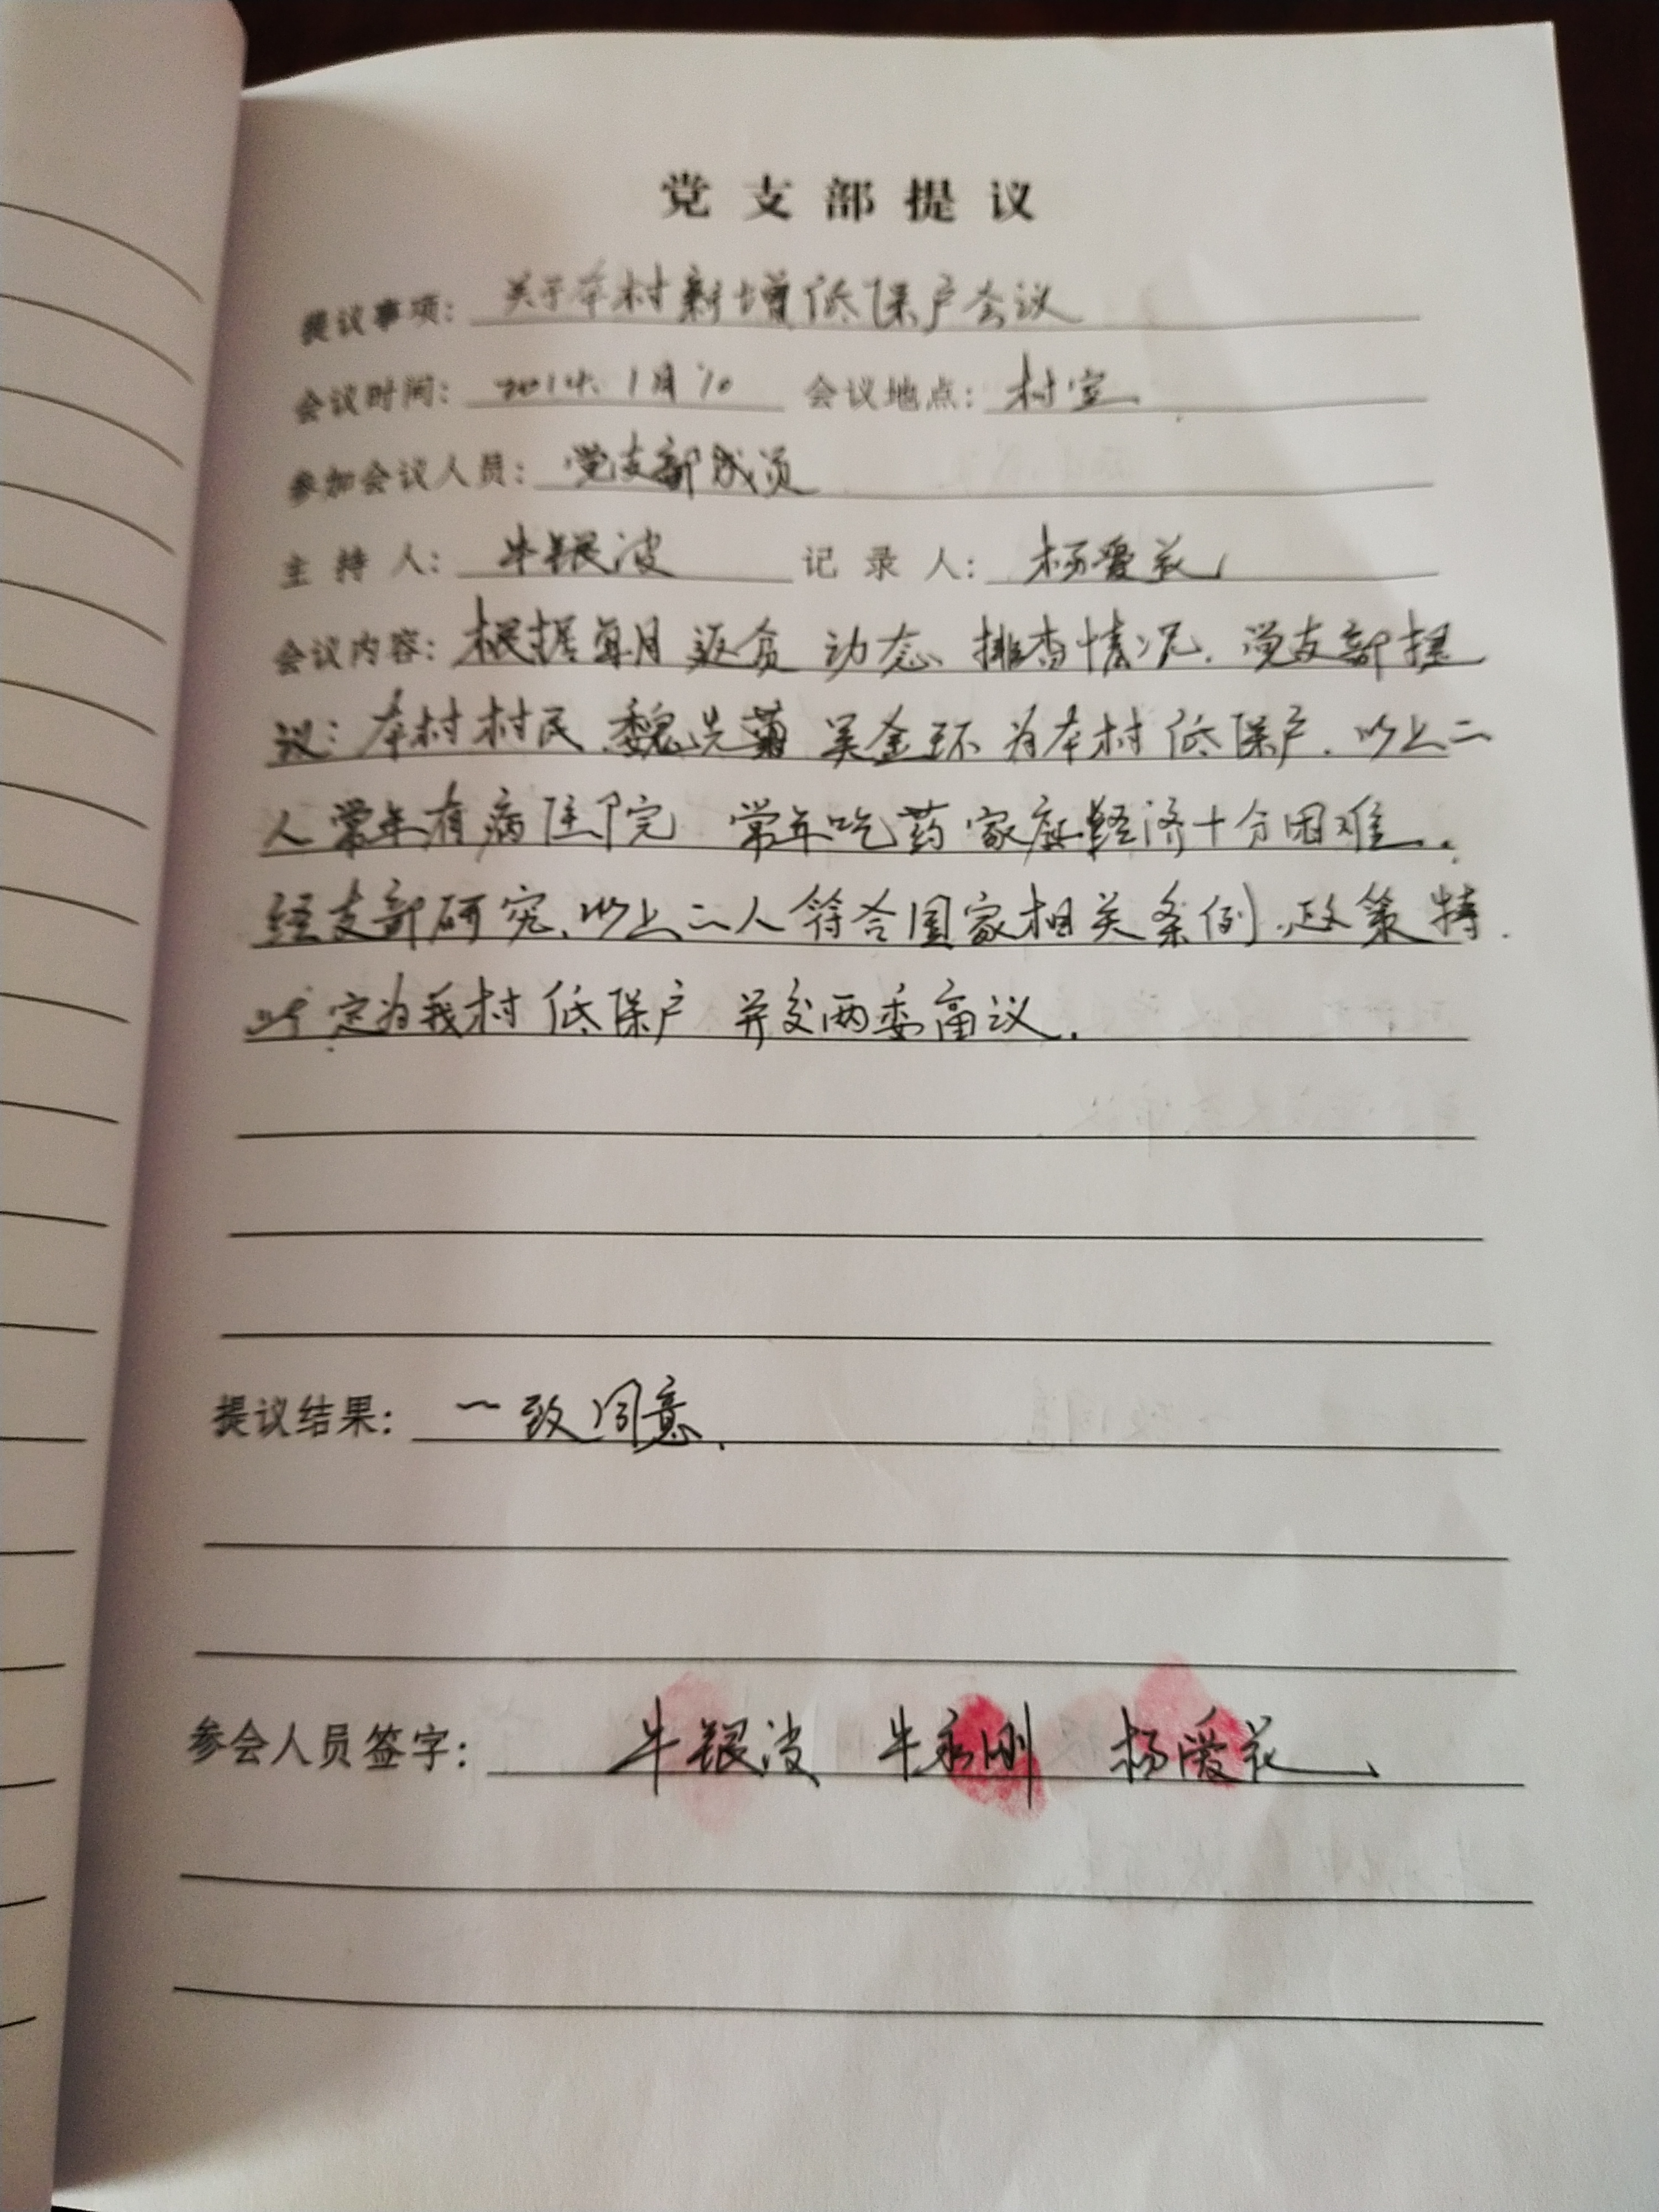 党支部提议
提议事项: 关于本村新增低保户会议
会议时间: 1月10 会议地点: 村室
参加会议人员: 党支部成员
主持人: 牛银波 记录人: 杨爱花
会议内容: 根据每月返贫动态、排查情况.党支部提
议: 本村村民 魏先菊 吴金环 为本村低保户.以上二
人常年有病住院 常年吃药 家庭经济十分困难.
经支部研究、以上二人符合国家相关条例、政策 特
定为我村低保户 并交两委商议.
提议结果: 一致同意.
参会人员签字: 牛银波 牛永刚 杨爱花